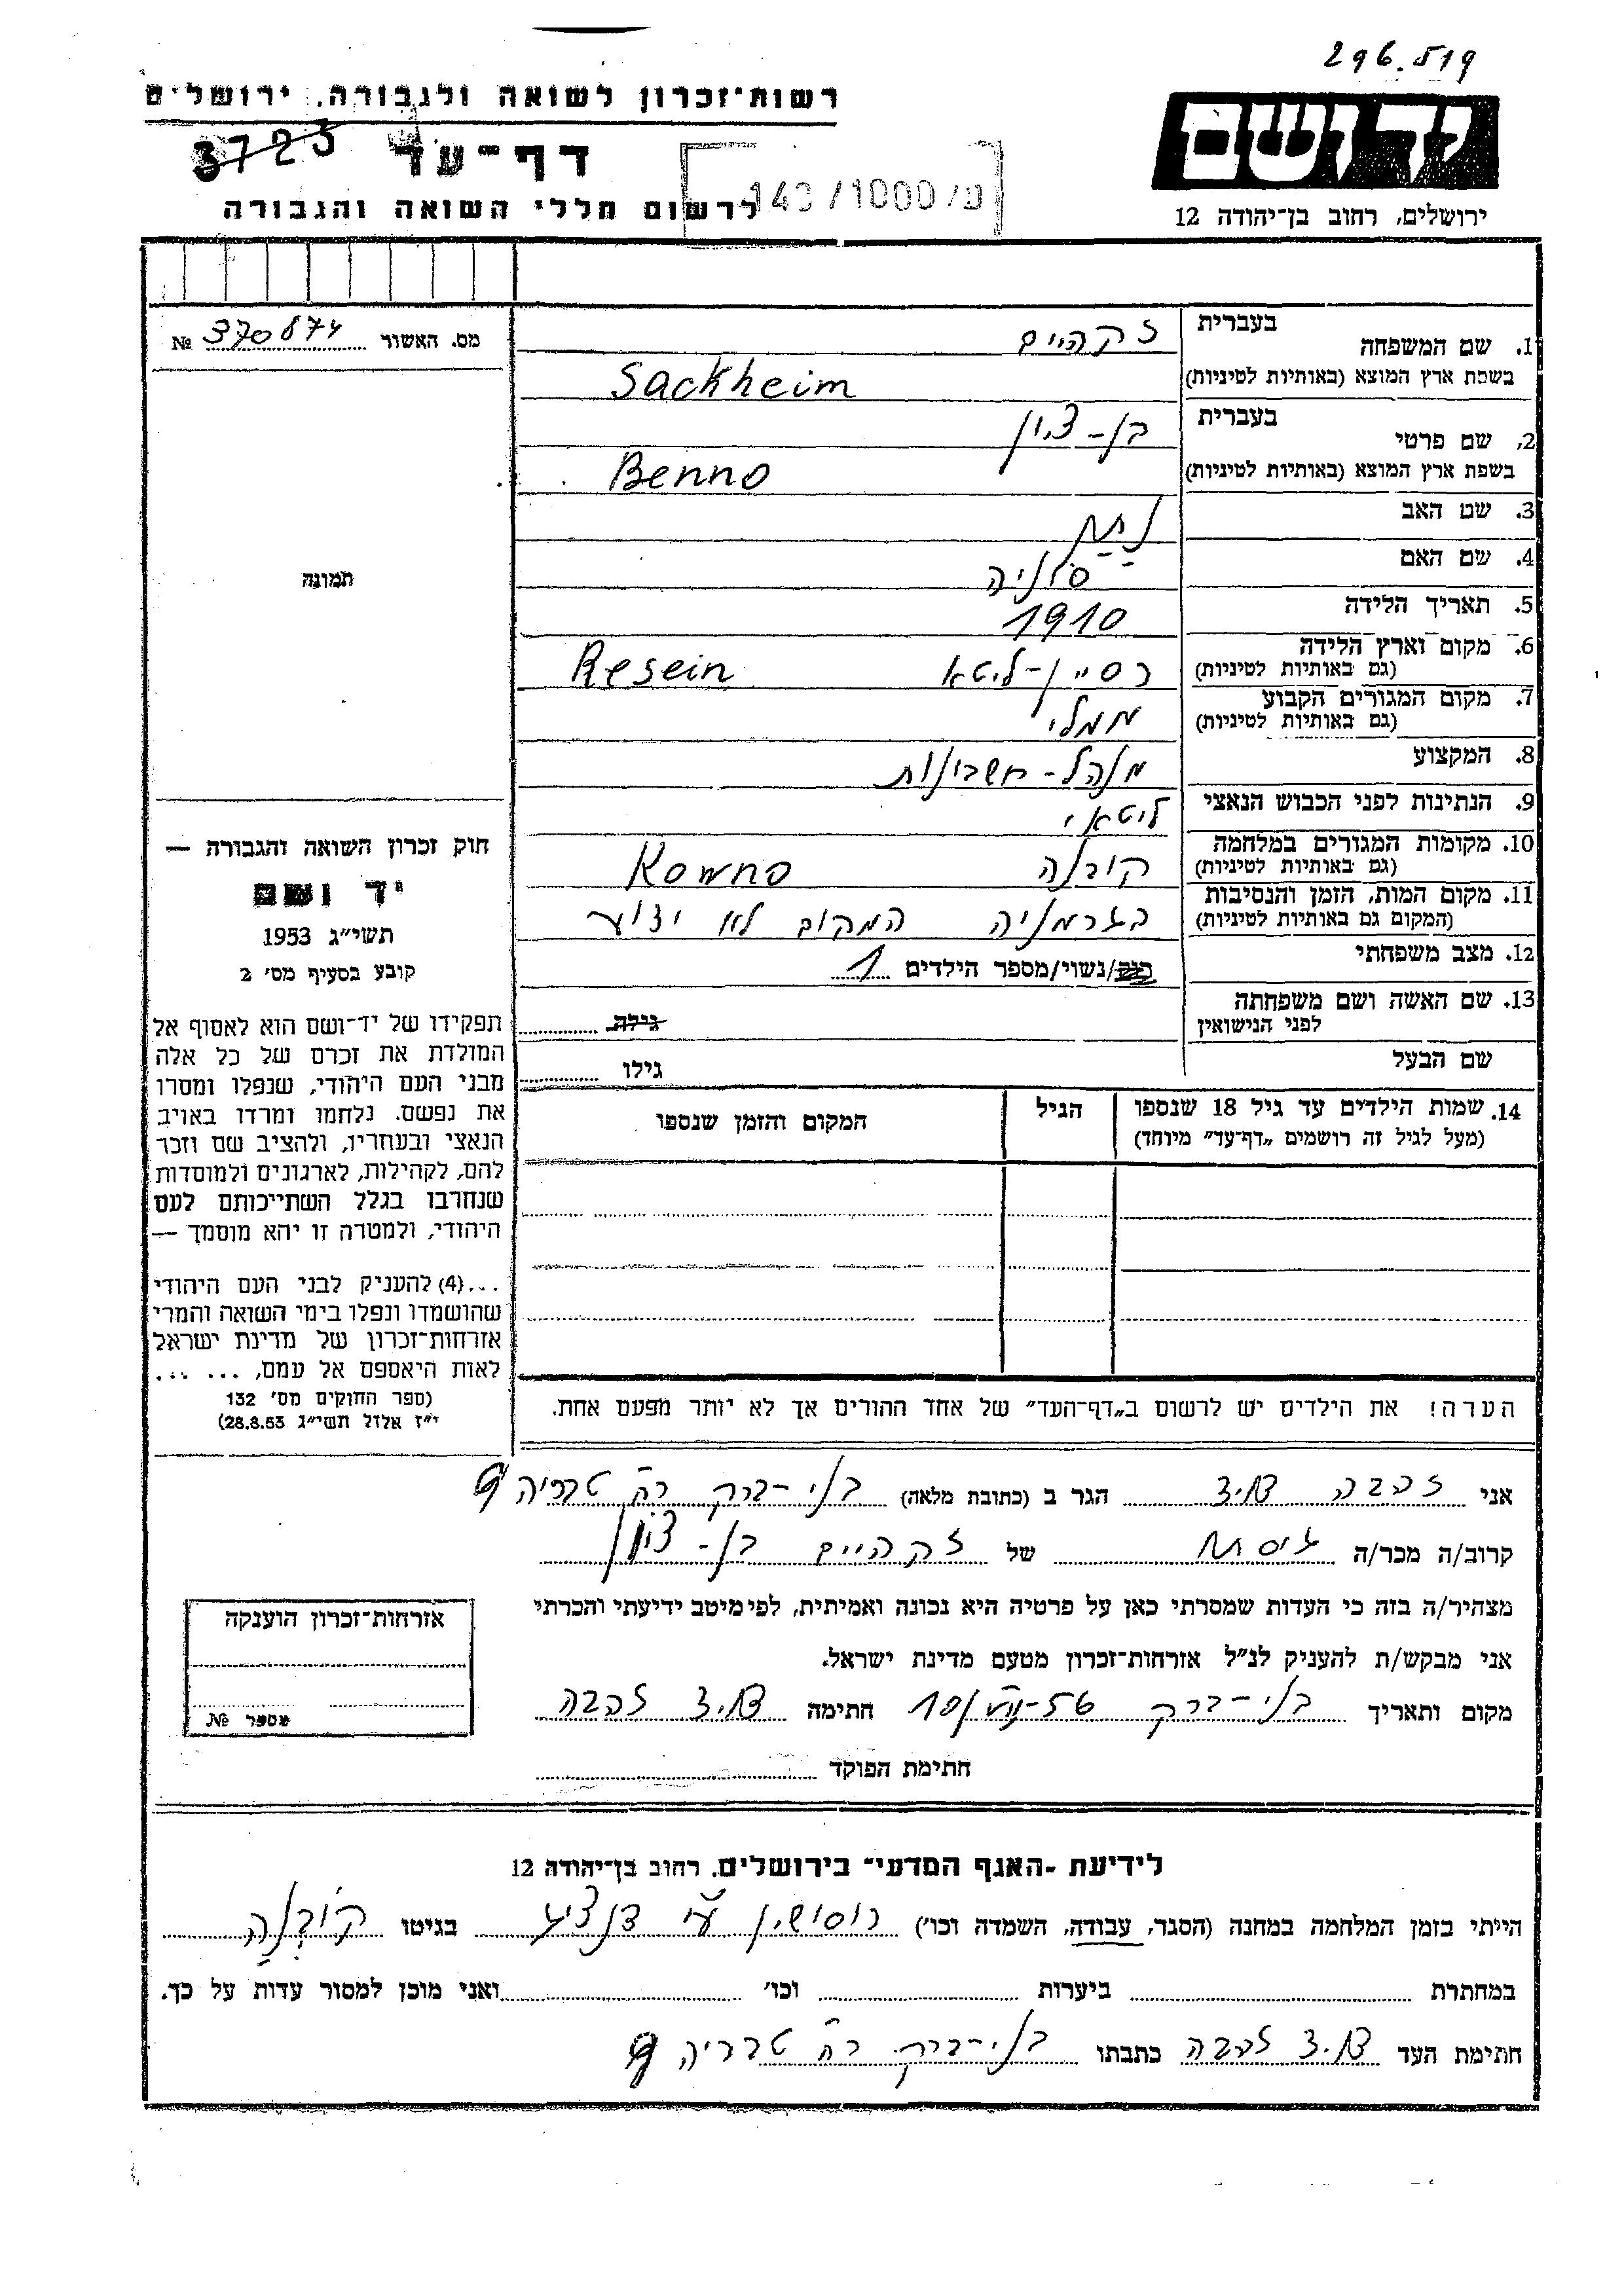 296.519
רשות־זכרון לשואה ולגבורה. ירושלים
ידושם
3723
דף־עד
143/1000/ש
לרשום חללי השואה והגבורה
ירושלים, רחוב בן־יהודה 12
מס. האשור 370674 №
תמונה
1. שם המשפחה בעברית זקהיים
בשפת ארץ המוצא (באותיות לטיניות) Sackheim
2. שם פרטי בעברית בן-ציון
בשפת ארץ המוצא (באותיות לטיניות) Benno
3. שם האב
4. שם האם סוניה
5. תאריך הלידה 1910
6. מקום וארץ הלידה רסיין-ליטא Resein
(גם באותיות לטיניות)
7. מקום המגורים הקבוע ממלי
(גם באותיות לטיניות)
8. המקצוע מנהל-חשבונות
9. הנתינות לפני הכבוש הנאצי ליטאי
10. מקומות המגורים במלחמה קובנה Kowno
(גם באותיות לטיניות)
11. מקום המות, הזמן והנסיבות בגרמניה המקום לא ידוע
(המקום גם באותיות לטיניות)
12. מצב משפחתי רוק/נשוי/מספר הילדים 1
13. שם האשה ושם משפחתה
לפני הנישואין גילה
שם הבעל גילו
14. שמות הילדים עד גיל 18 שנספו הגיל המקום והזמן שנספו
(מעל לגיל זה רושמים „דף־עד” מיוחד)
חוק זכרון השואה והגבורה —
יד ושם
תשי״ג 1953
קובע בסעיף מס׳ 2
תפקידו של יד־ושם הוא לאסוף אל
המולדת את זכרם של כל אלה
מבני העם היהודי, שנפלו ומסרו
את נפשם. נלחמו ומרדו באויב
הנאצי ובעוזריו, ולהציב שם וזכר
להם, לקהילות, לארגונים ולמוסדות
שנחרבו בגלל השתייכותם לעם
היהודי, ולמטרה זו יהא מוסמך —
...(4) להעניק לבני העם היהודי
שהושמדו ונפלו בימי השואה והמרי
אזרחות־זכרון של מדינת ישראל
לאות היאספם אל עמם, ... ...
(ספר החוקים מס׳ 132
י״ז אלול תשי״ג 28.8.53)
הערה! את הילדים יש לרשום ב„דף־העד” של אחד ההורים אך לא יותר מפעם אחת.
אני זהבה הגר ב (כתובת מלאה) בני-ברק רח׳ טבריה 9
קרוב/ה מכר/ה גיסת של זקהיים בן-ציון
מצהיר/ה בזה כי העדות שמסרתי כאן על פרטיה היא נכונה ואמיתית, לפי מיטב ידיעתי והכרתי
אני מבקש/ת להעניק לנ״ל אזרחות־זכרון מטעם מדינת ישראל.
מקום ותאריך בני-ברק חתימה זהבה
חתימת הפוקד
אזרחות־זכרון הוענקה
מספר №
לידיעת -האגף המדעי־ בירושלים. רחוב בן־יהודה 12
הייתי בזמן המלחמה במחנה (הסגר, עבודה, השמדה וכו׳) רוסושין ע״י דנציג בגיטו קובנה
במחתרת ביערות וכו׳ ואני מוכן למסור עדות על כך.
חתימת העד זהבה כתבתו בני-ברק רח׳ טבריה 9